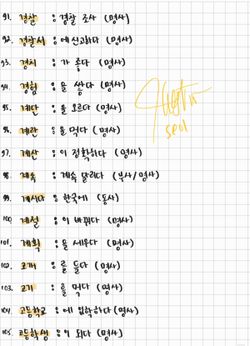 91. 경찰 : 경찰 조사 (명사)
92. 경찰서 : 에 신고하다 (명사)
93. 경치 : 가 좋다 (명사)
94. 경험 : 을 쌓다 (명사)
95. 계단 : 을 오르다 (명사)
96. 계란 : 을 먹다 (명사)
97. 계산 : 이 정확하다 (명사)
98. 계속 : 계속 달리다 (부사/명사)
99. 계시다 : 한국에 (동사)
100. 계절 : 이 바뀌다 (명사)
101. 계획 : 을 세우다 (명사)
102. 고개 : 를 들다 (명사)
103. 고기 : 를 먹다 (명사)
104. 고등학교 : 에 입학하다 (명사)
105. 고등학생 : 이 되다 (명사)